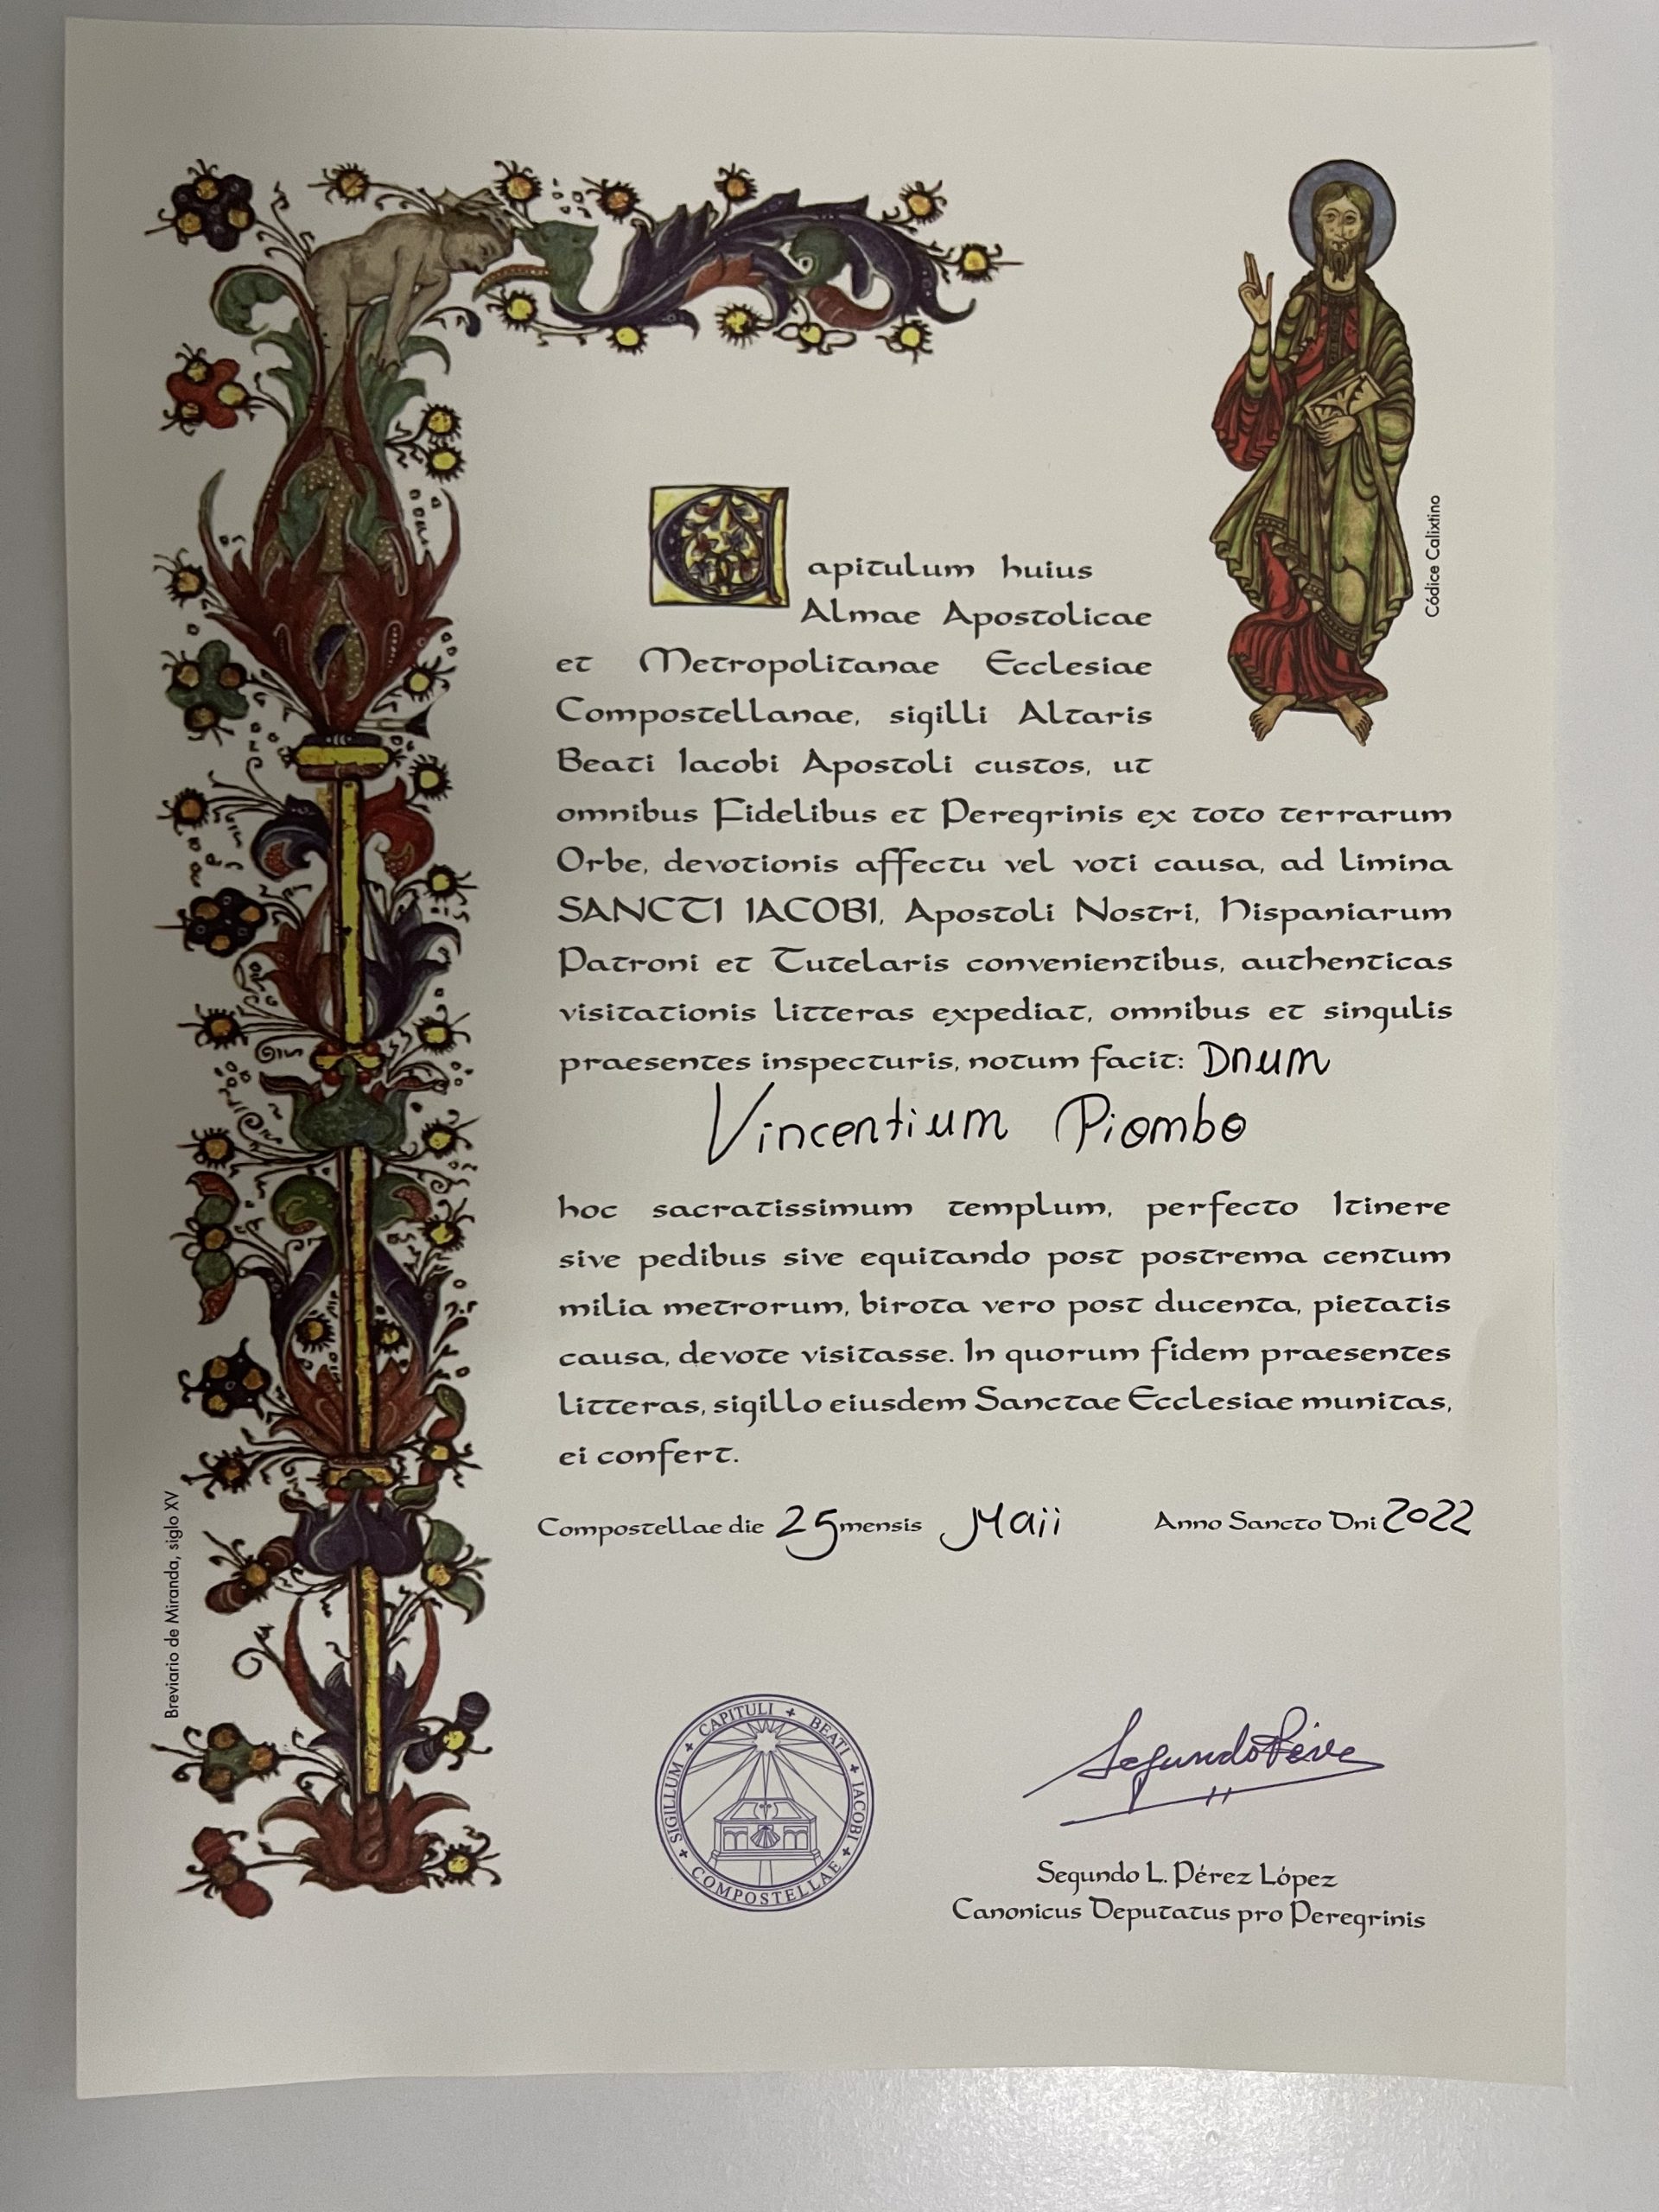 Capitulum huius
Almae Apostolicae
et Metropolitanae Ecclesiae
Compostellanae, sigilli Altaris
Beati Iacobi Apostoli custos, ut
omnibus Fidelibus et Peregrinis ex toto terrarum
Orbe, devotionis affectu vel voti causa, ad limina
SANCTI IACOBI, Apostoli Nostri, Hispaniarum
Patroni et Tutelaris convenientibus, authenticas
visitationis litteras expediat, omnibus et singulis
praesentes inspecturis, notum facit: Dnum
Vincentium Piombo
hoc sacratissimum templum, perfecto Itinere
sive pedibus sive equitando post postrema centum
milia metrorum, birota vero post ducenta, pietatis
causa, devote visitasse. In quorum fidem praesentes
litteras, sigillo eiusdem Sanctae Ecclesiae munitas,
ei confert.
Compostellae die 25 mensis Maii Anno Sancto Dni 2022
Códice Calixtino
Breviario de Miranda, siglo XV
SIGILLUM + CAPITULI + BEATI + IACOBI + COMPOSTELLAE +
Segundo Pérez
Segundo L. Pérez López
Canonicus Deputatus pro Peregrinis